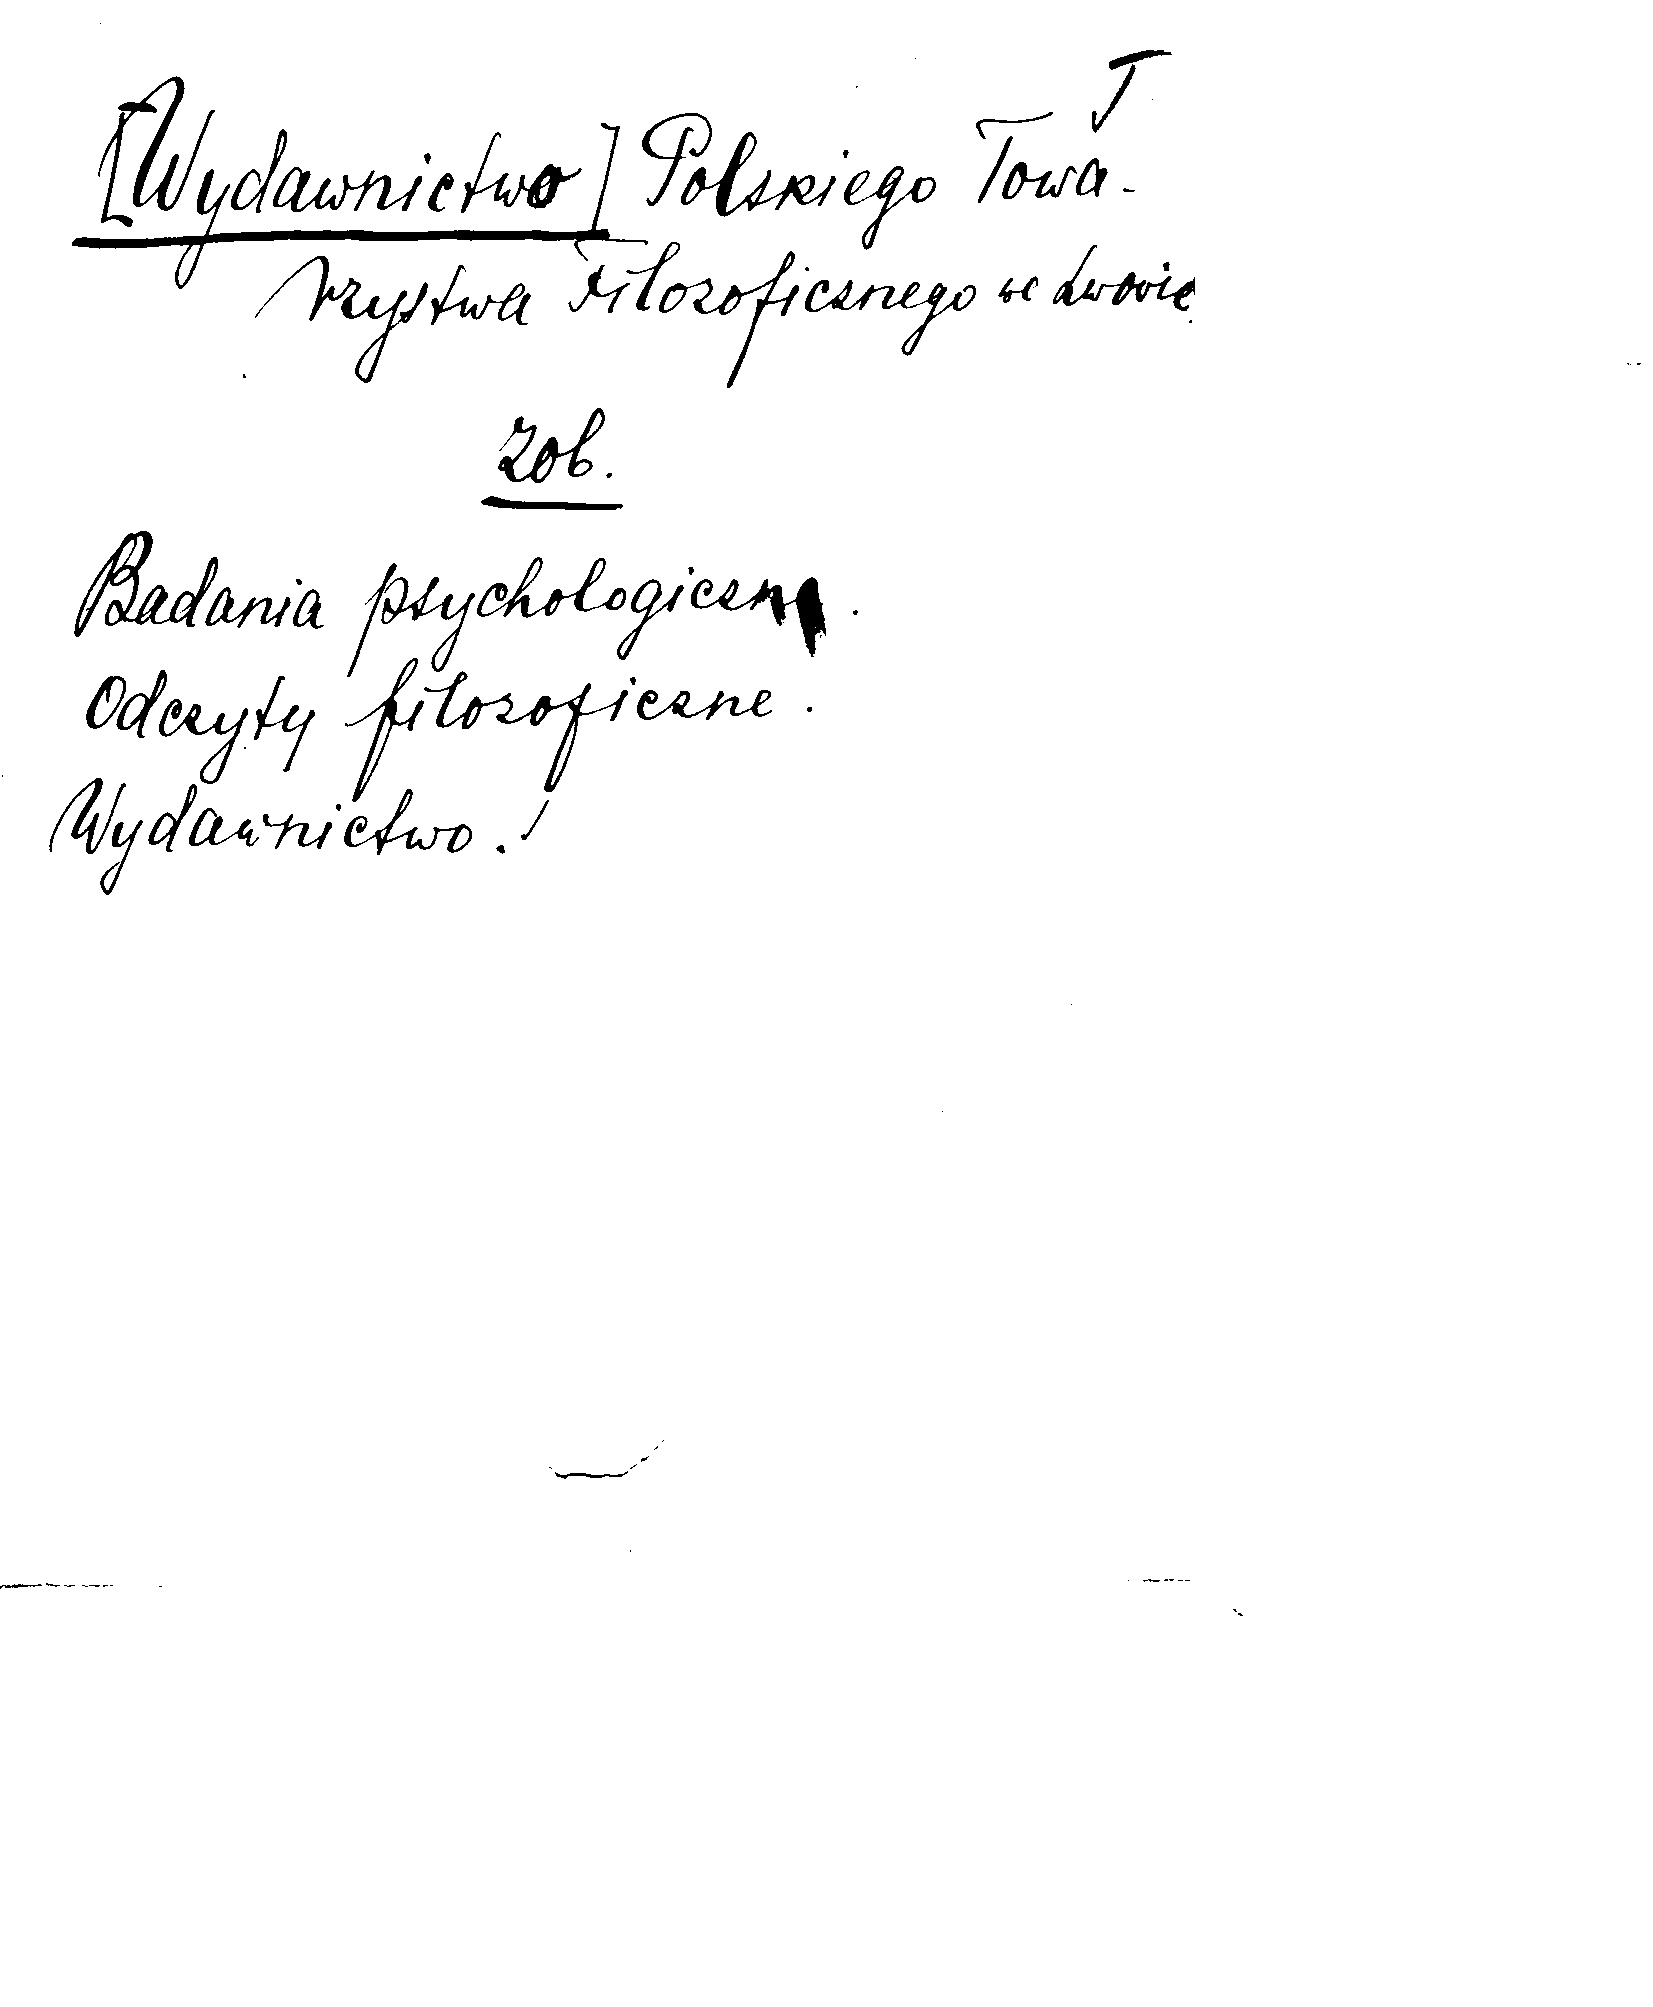 T
[Wydawnictwo] Polskiego Towa-
rzystwa Filozoficznego we Lwowie
zob.
Badania psychologiczne.
Odczyty filozoficzne.
Wydawnictwo.!